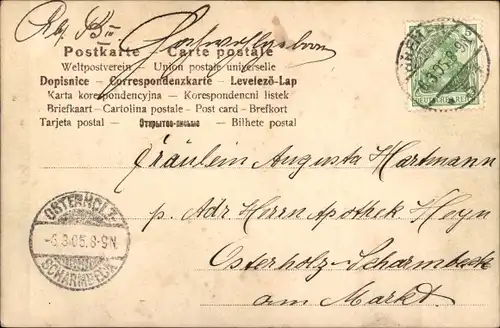 Postkarte — Carte postale
Weltpostverein — Union postale universelle
Dopisnice — Correspondenzkarte — Levelező-Lap
Karta korespondencyjna — Korespondencní listek
Briefkaart — Cartolina postale — Post card — Brefkort
Tarjeta postal — Открытое-письмо — Bilhete postal
DEUTSCHES REICH
Fräulein Augusta Hartmann
p. Adr Herrn Apothek Heyn
Osterholz-Scharmbeck
am Markt.
OSTERHOLZ-
-6.3.05.8-9N.
SCHARMBECK